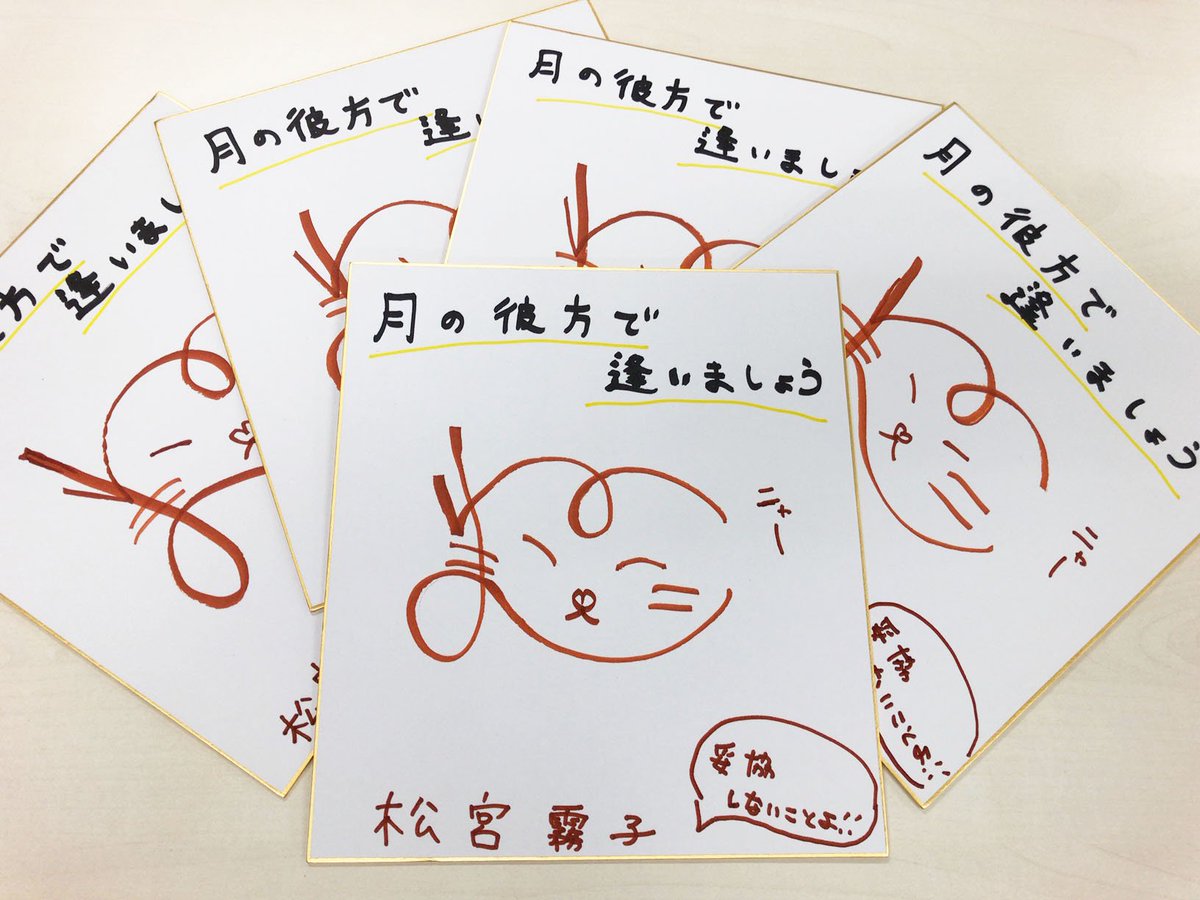 月の彼方で
逢いましょう
ニャー
妥協
しないことよ!!
松宮霧子
月の彼方で
逢い
月の彼方で
逢いましょ
方で
逢いまし
松
月の彼方で
逢いましょう
ニャー
妥協
いことよ!!